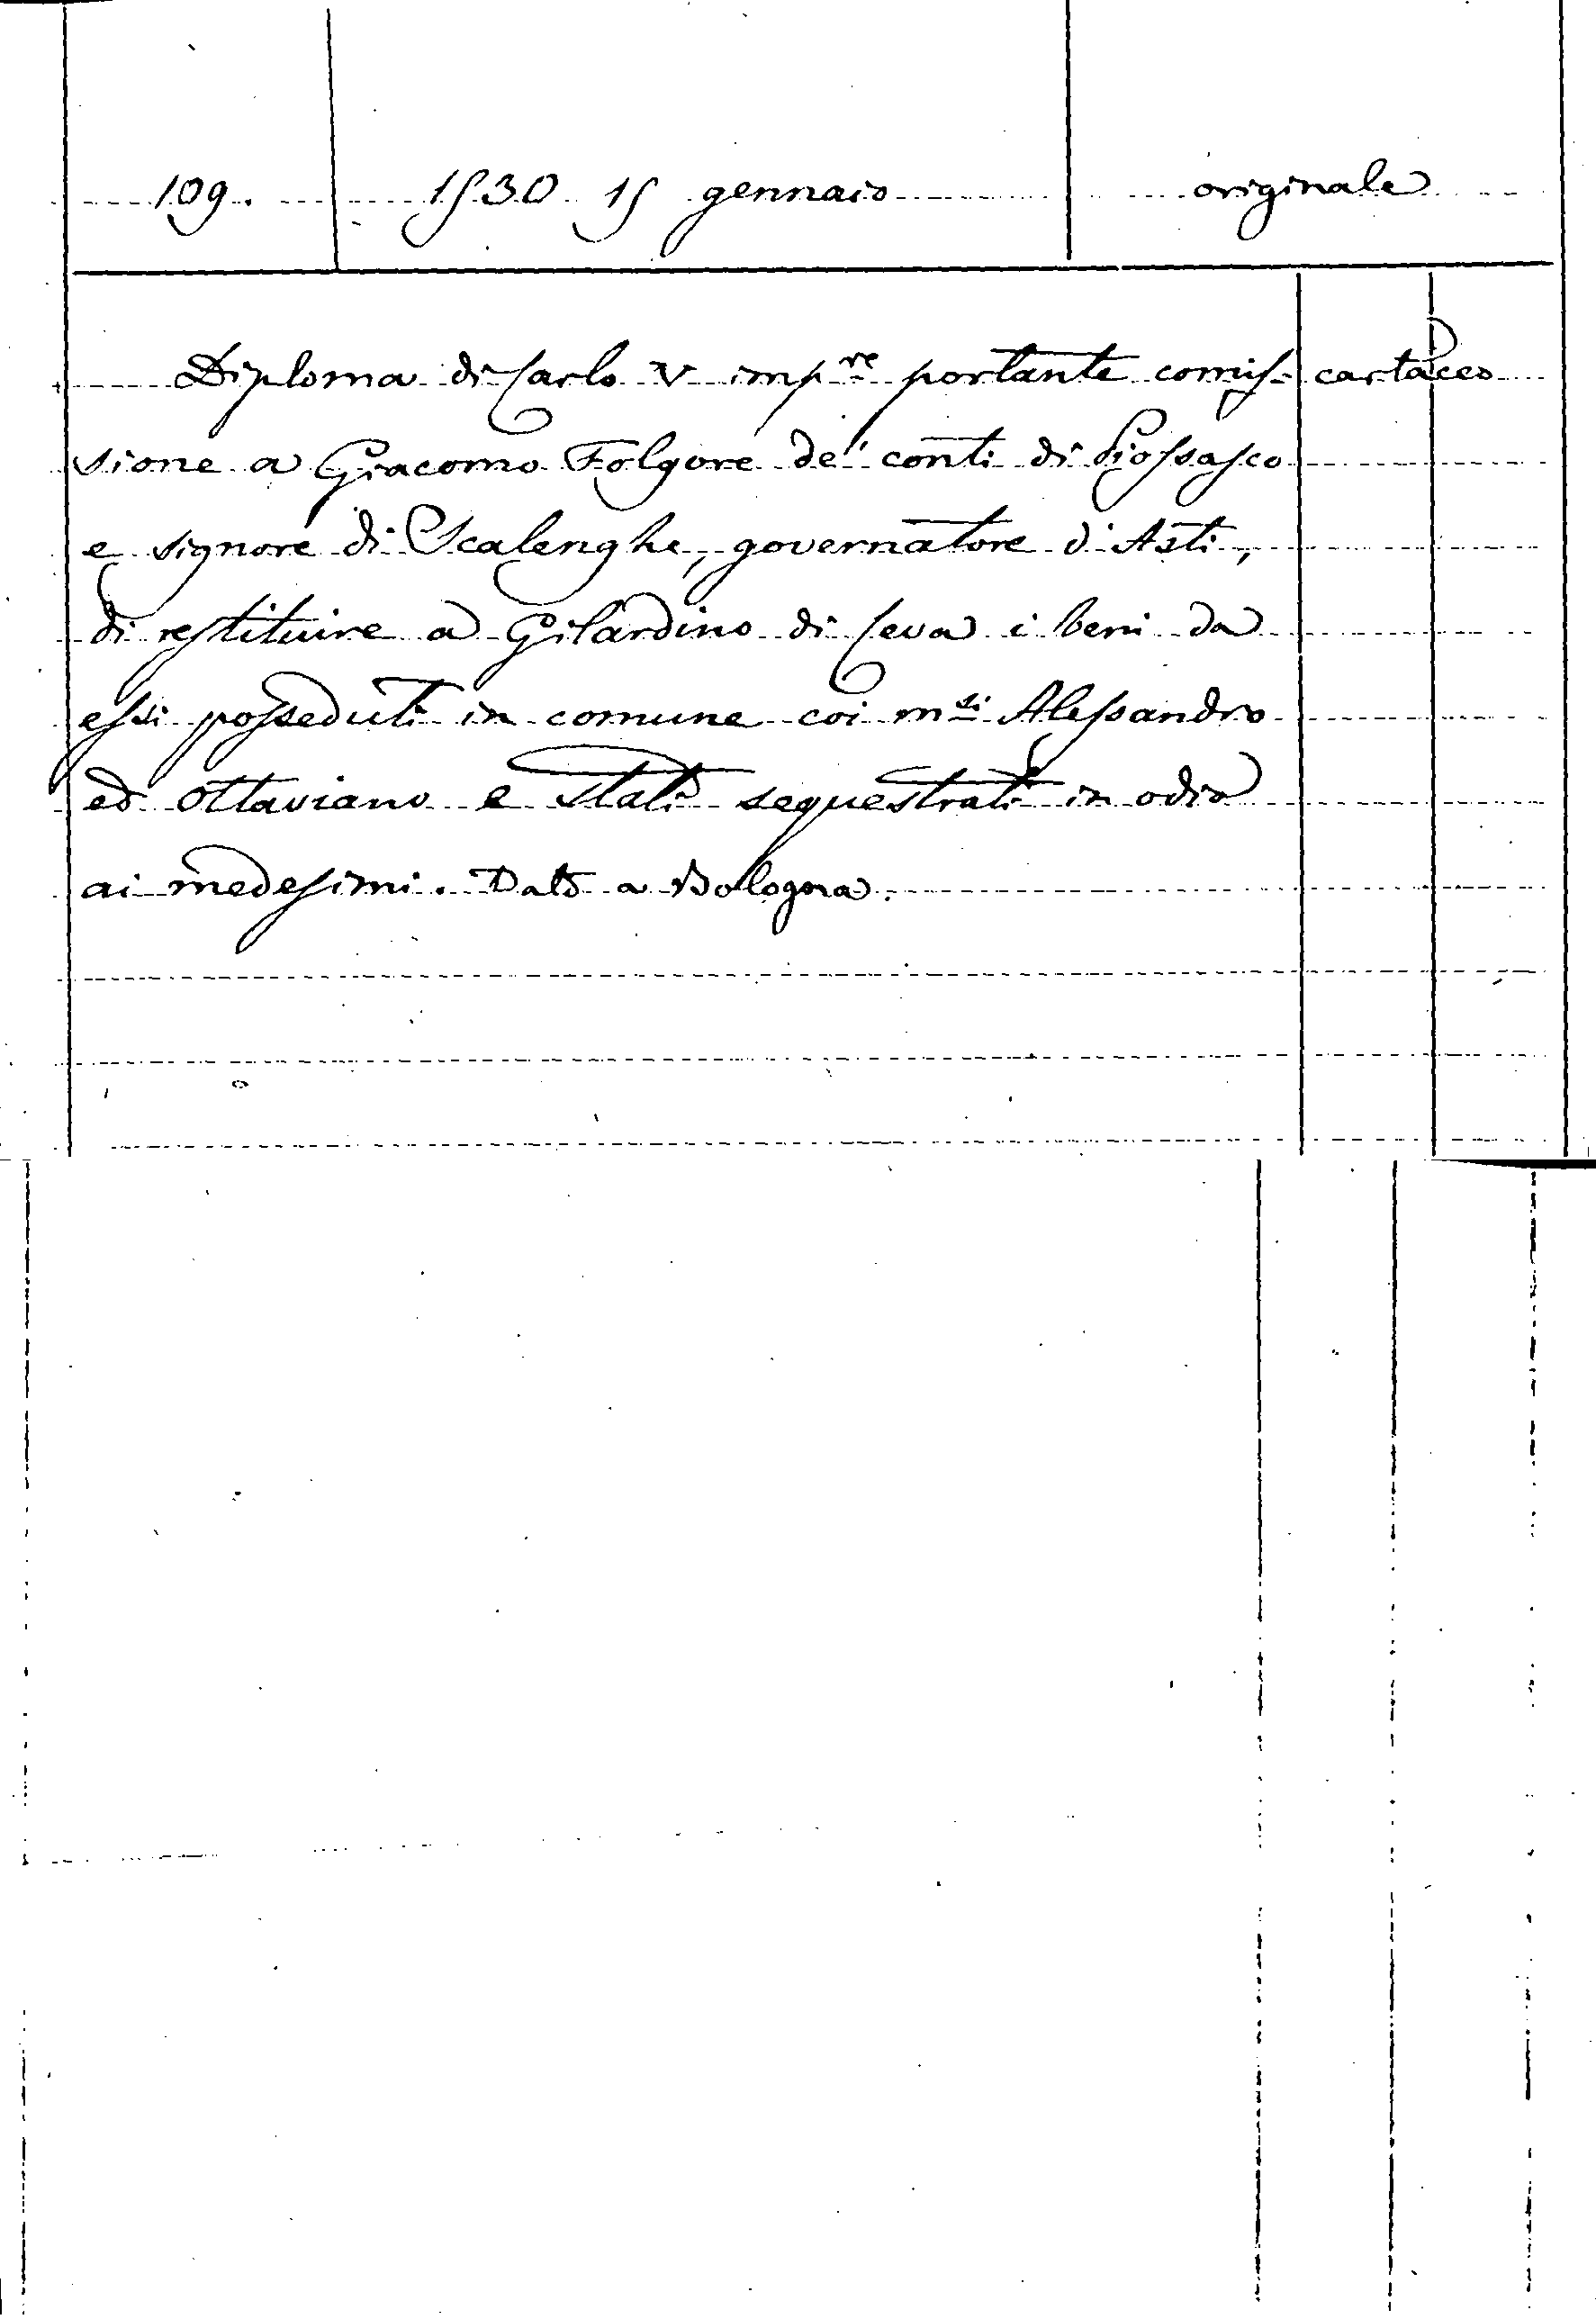 109. 1530 15 gennaio originale
Diploma di Carlo V imp.re portante comis- cartaceo
sione a Giacomo Folgore de' conti di Piossasco
e signore di Scalenghe, governatore d'Asti,
di restituire a Gilardino di Ceva i beni da
essi posseduti in comune coi m.si Alessandro
ed Ottaviano e stati sequestrati in odio
ai medesimi. Dato a Bologna.